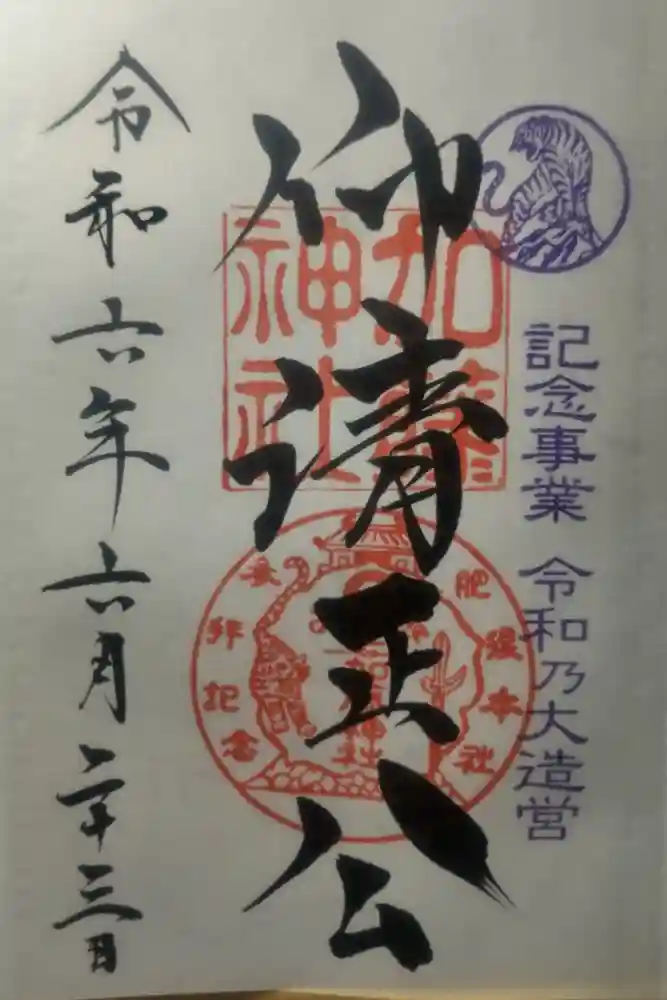 記念事業 令和乃大造営
仰清正公
加藤
神社
肥後本社
参拝記念
加藤神社
令和六年六月二十三日